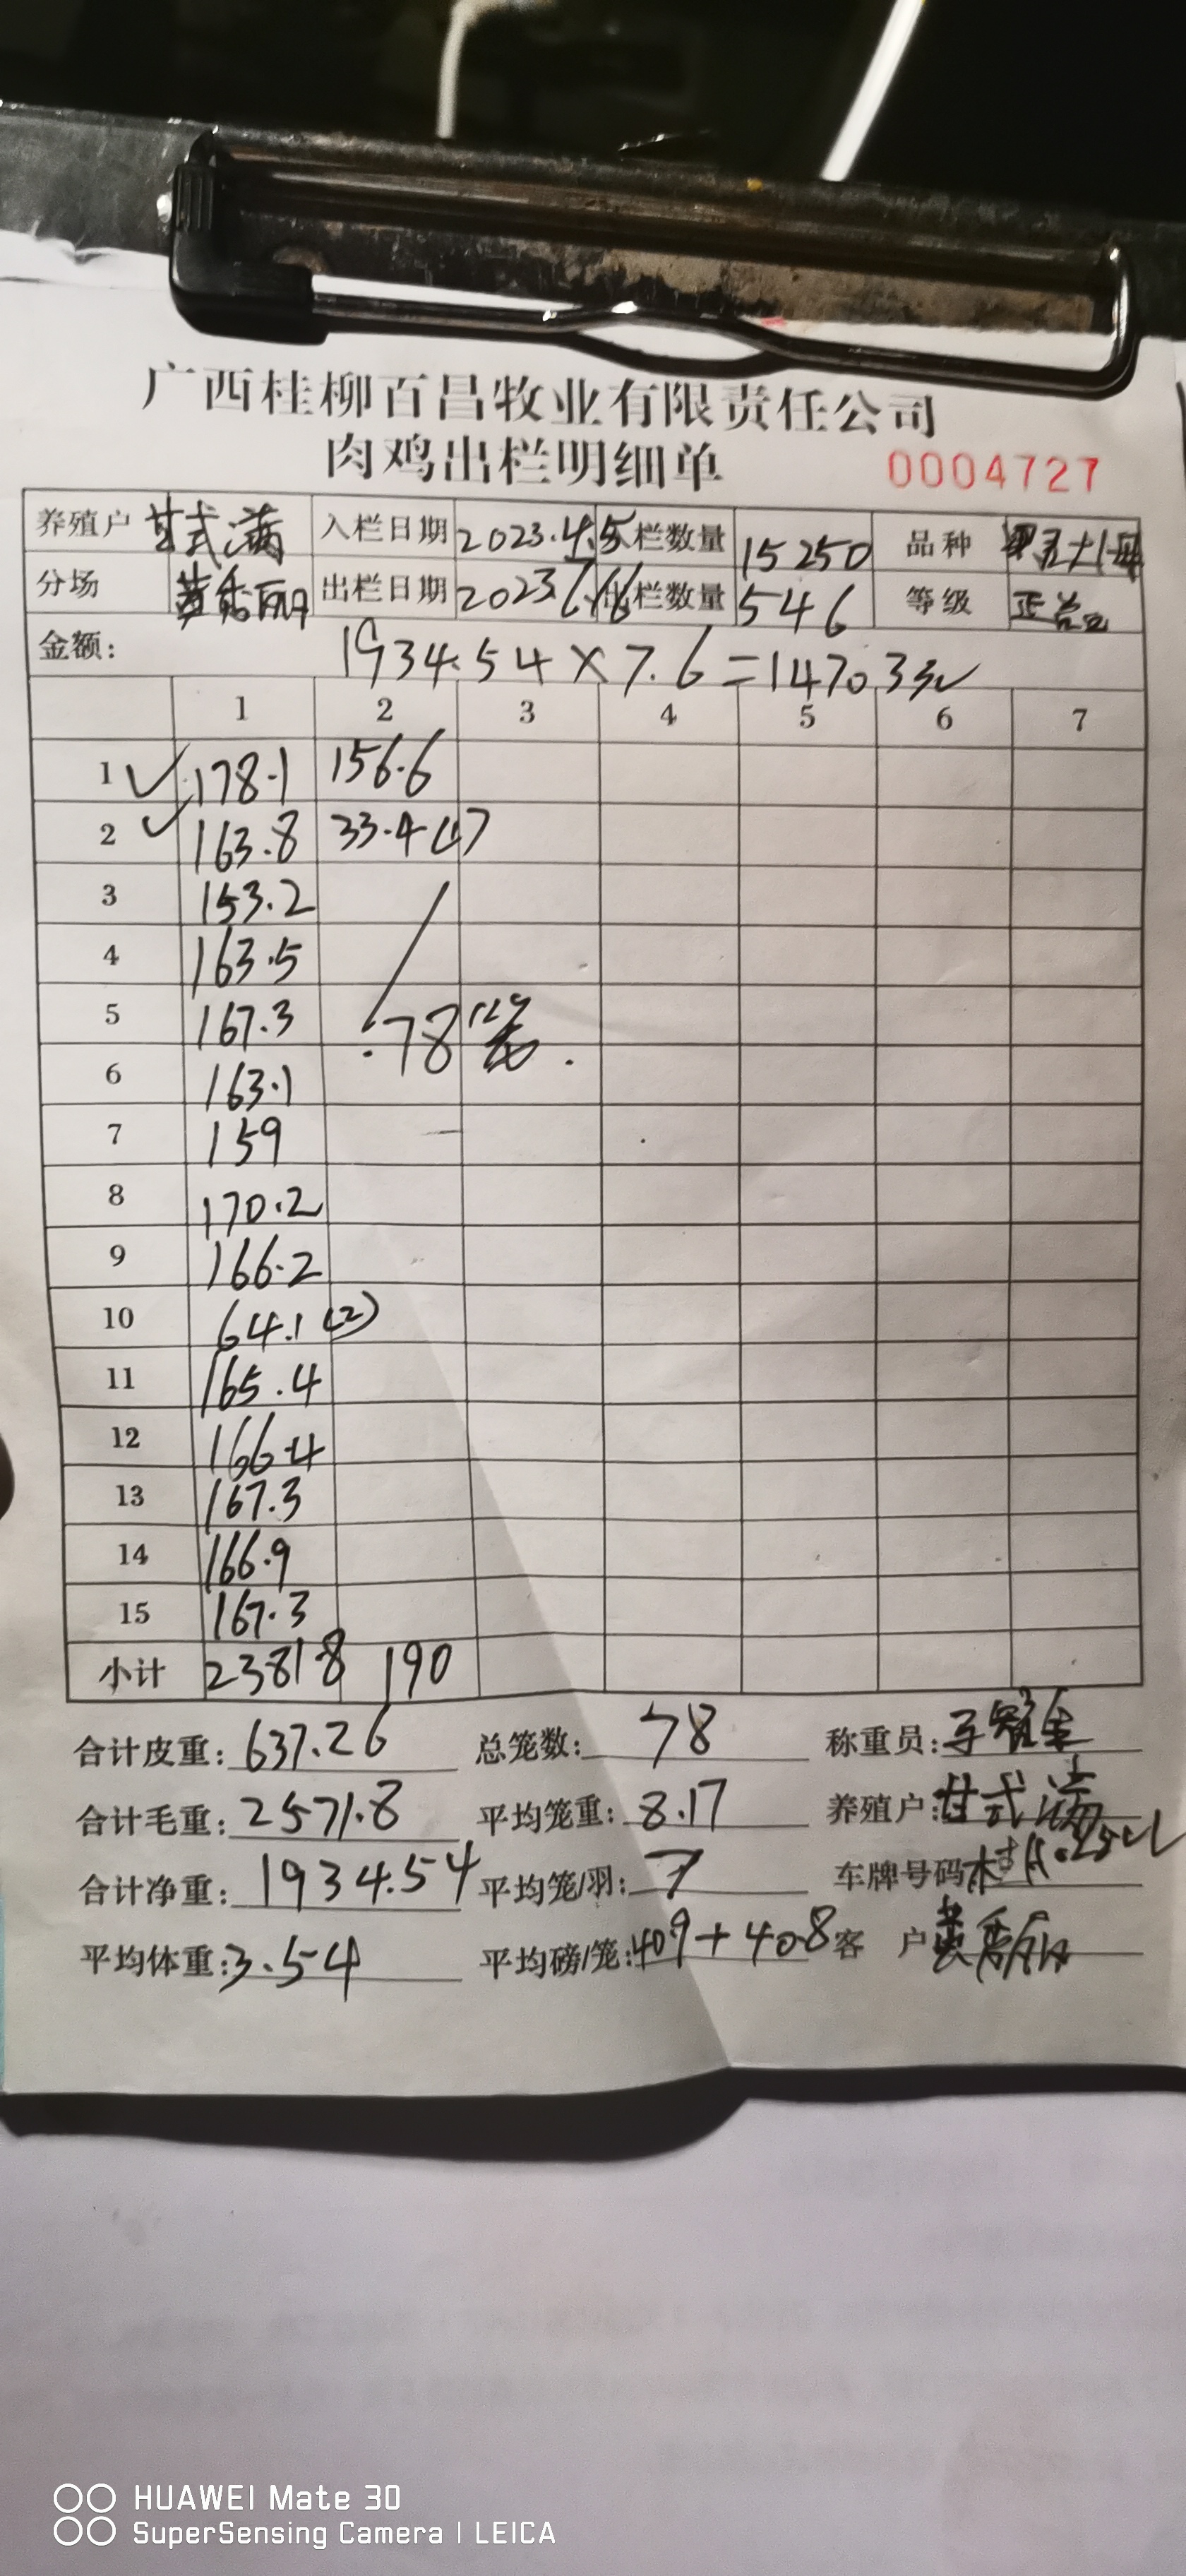 广西桂柳百昌牧业有限责任公司
肉鸡出栏明细单 0004727
养殖户 甘式满 入栏日期 2023.4.5 入栏数量 15250 品种
分场 黄秀丽 出栏日期 2023.6.16 出栏数量 546 等级 正品
金额: 1934.54×7.6=14703元
1 2 3 4 5 6 7
1 ✓ 178.1 156.6
2 ✓ 163.8 33.4(1)
3 153.2
4 163.5
5 167.3 78笼.
6 163.1
7 159
8 170.2
9 166.2
10 64.1(2)
11 165.4
12 166.4
13 167.3
14 166.9
15 167.3
小计 2381.8 190
合计皮重: 637.26 总笼数: 78 称重员:
合计毛重: 2571.8 平均笼重: 8.17 养殖户: 甘式满
合计净重: 1934.54 平均笼/羽: 7 车牌号码
平均体重: 3.54 平均磅/笼: 409+408 客 户 黄秀丽
HUAWEI Mate 30
SuperSensing Camera | LEICA